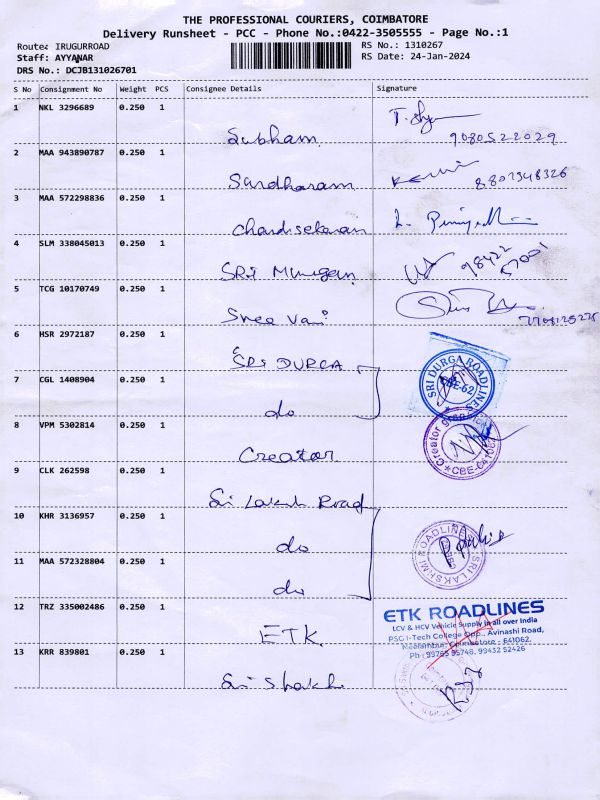 THE PROFESSIONAL COURIERS, COIMBATORE
Delivery Runsheet - PCC - Phone No.:0422-3505555 - Page No.:1
Route: IRUGURROAD
RS No.: 1310267
Staff: AYYANAR
RS Date: 24-Jan-2024
DRS No.: DCJB131026701
S No Consignment No Weight PCS Consignee Details Signature
1 NKL 3296689 0.250 1
Subham 9080522029
2 MAA 943890787 0.250 1
Sardharam 8802348326
3 MAA 572298836 0.250 1
Chandisekaran
4 SLM 338045013 0.250 1
SRI Murugan 98422 57001
5 TCG 10170749 0.250 1
Sree Vari
6 HSR 2972187 0.250 1
SRI DURGA
SRI DURGA ROADLINES
CBE-62
7 CGL 1408904 0.250 1
do
8 VPM 5302814 0.250 1
Creator
Creator
9 CLK 262598 0.250 1
Sri Laksh Road
10 KHR 3136957 0.250 1
do
SRI LAKSHMI ROADLINES
11 MAA 572328804 0.250 1
do
12 TRZ 335002486 0.250 1
ETK
ETK ROADLINES
LCV & HCV Vehicle Supply in all over India
PSG I-Tech College Opp., Avinashi Road,
Neelambur, Coimbatore - 641062.
Ph : 99765 95748, 99432 52426
13 KRR 839801 0.250 1
Sri Shakthi